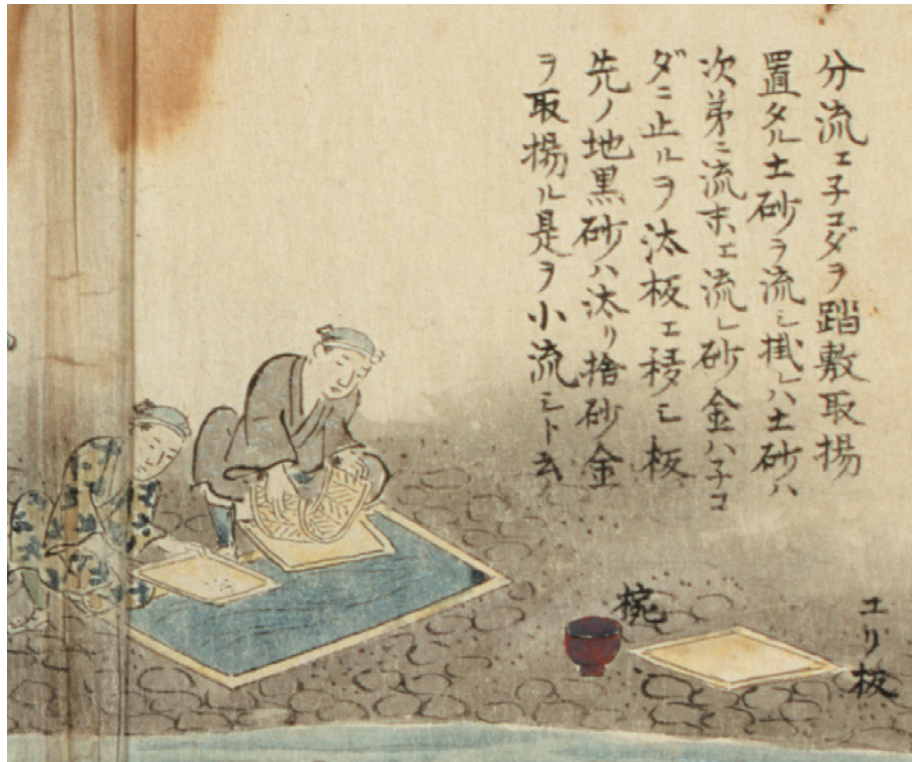 分流エ子コダヲ踏敷取揚
置タル土砂ヲ流シ掛レハ土砂ハ
次第ニ流末エ流レ砂金ハ子コ
ダニ止ルヲ汰板エ移シ板
先ノ地黒砂ハ汰リ捨砂金
ヲ取揚ル是ヲ小流シト云
椀
ユリ板